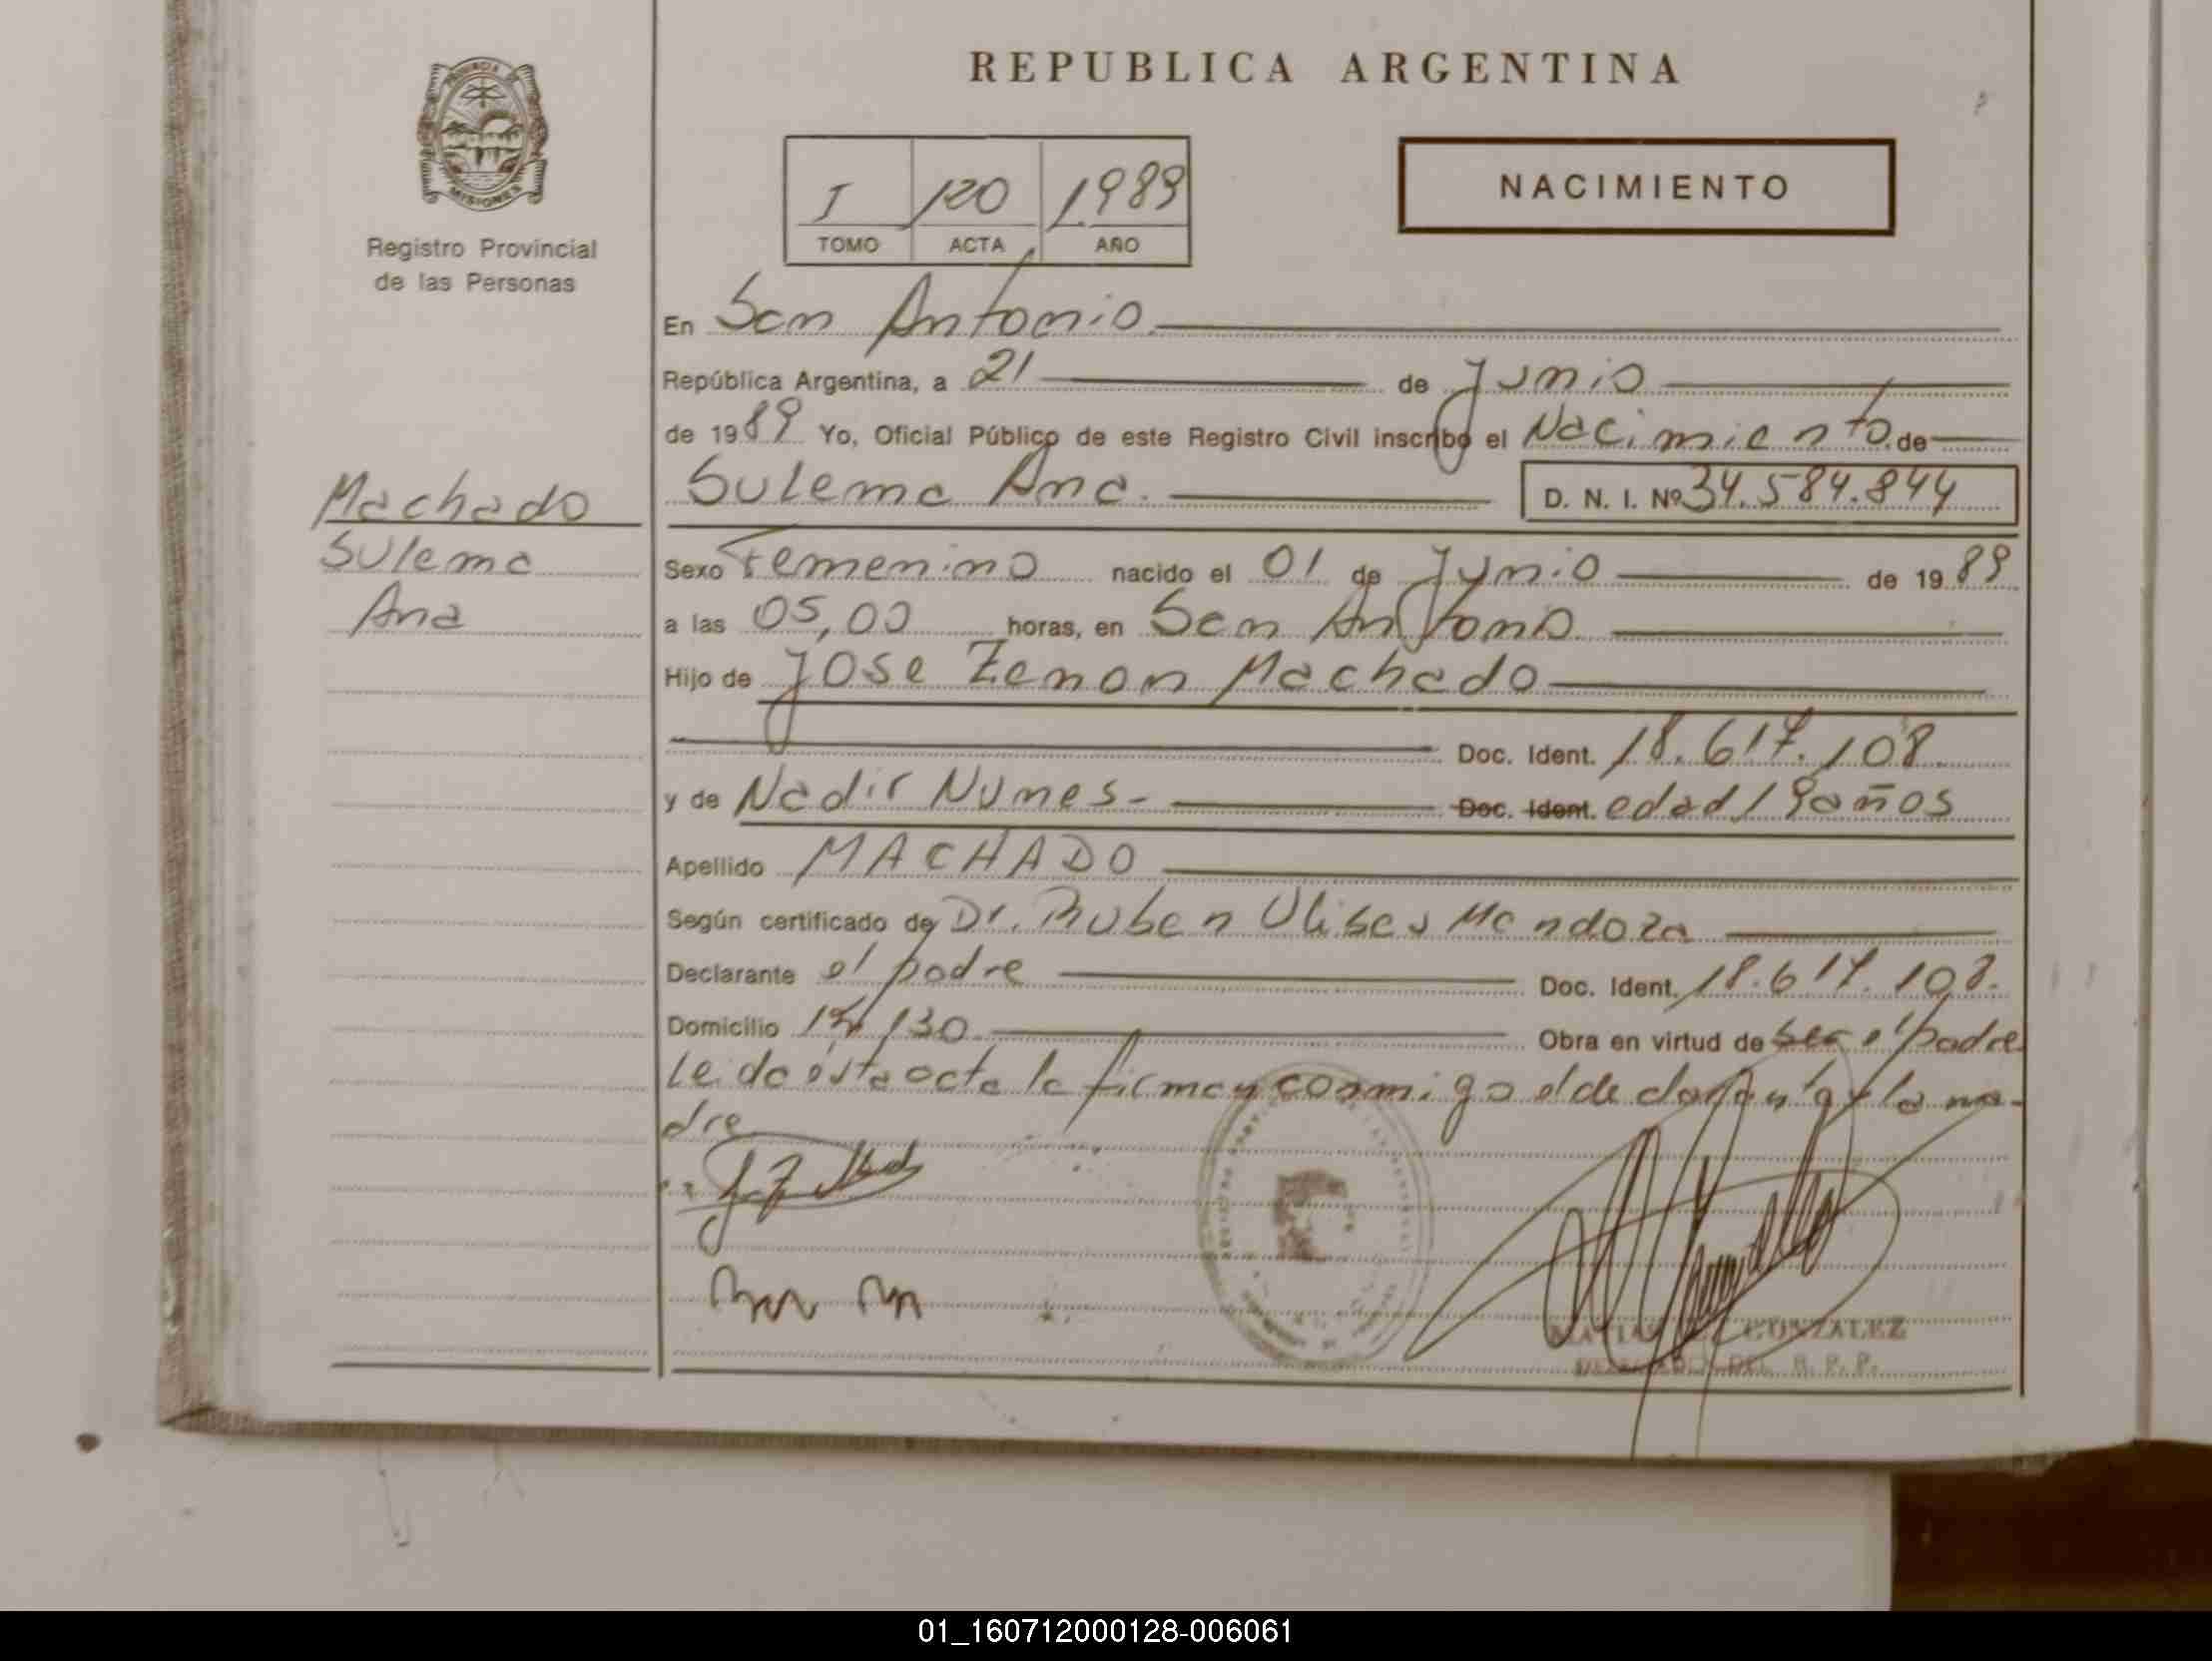 REPUBLICA ARGENTINA
PROVINCIA DE
MISIONES
Registro Provincial
de las Personas
I 120 1989
TOMO ACTA AÑO
NACIMIENTO
En San Antonio
República Argentina, a 21 de Junio
de 1989 Yo, Oficial Público de este Registro Civil inscribo el Nacimiento de
Machado
Sulema
Ana
Sulema Ana. D. N. I. Nº 34.584.844
Sexo Femenino nacido el 01 de Junio de 1989
a las 05,00 horas, en San Antonio
Hijo de Jose Zenon Machado
Doc. Ident. 18.617.108
y de Nadir Nunes- Doc. Ident. edad 19 años
Apellido MACHADO
Según certificado de Dr. Ruben Ulises Mendoza
Declarante el padre Doc. Ident. 18.617.108.
Domicilio 130 Obra en virtud de ser el padre
Leida ésta acta la firman conmigo el declarante y la ma-
dre
GONZALEZ
DEL R. P. P.
01_160712000128-006061